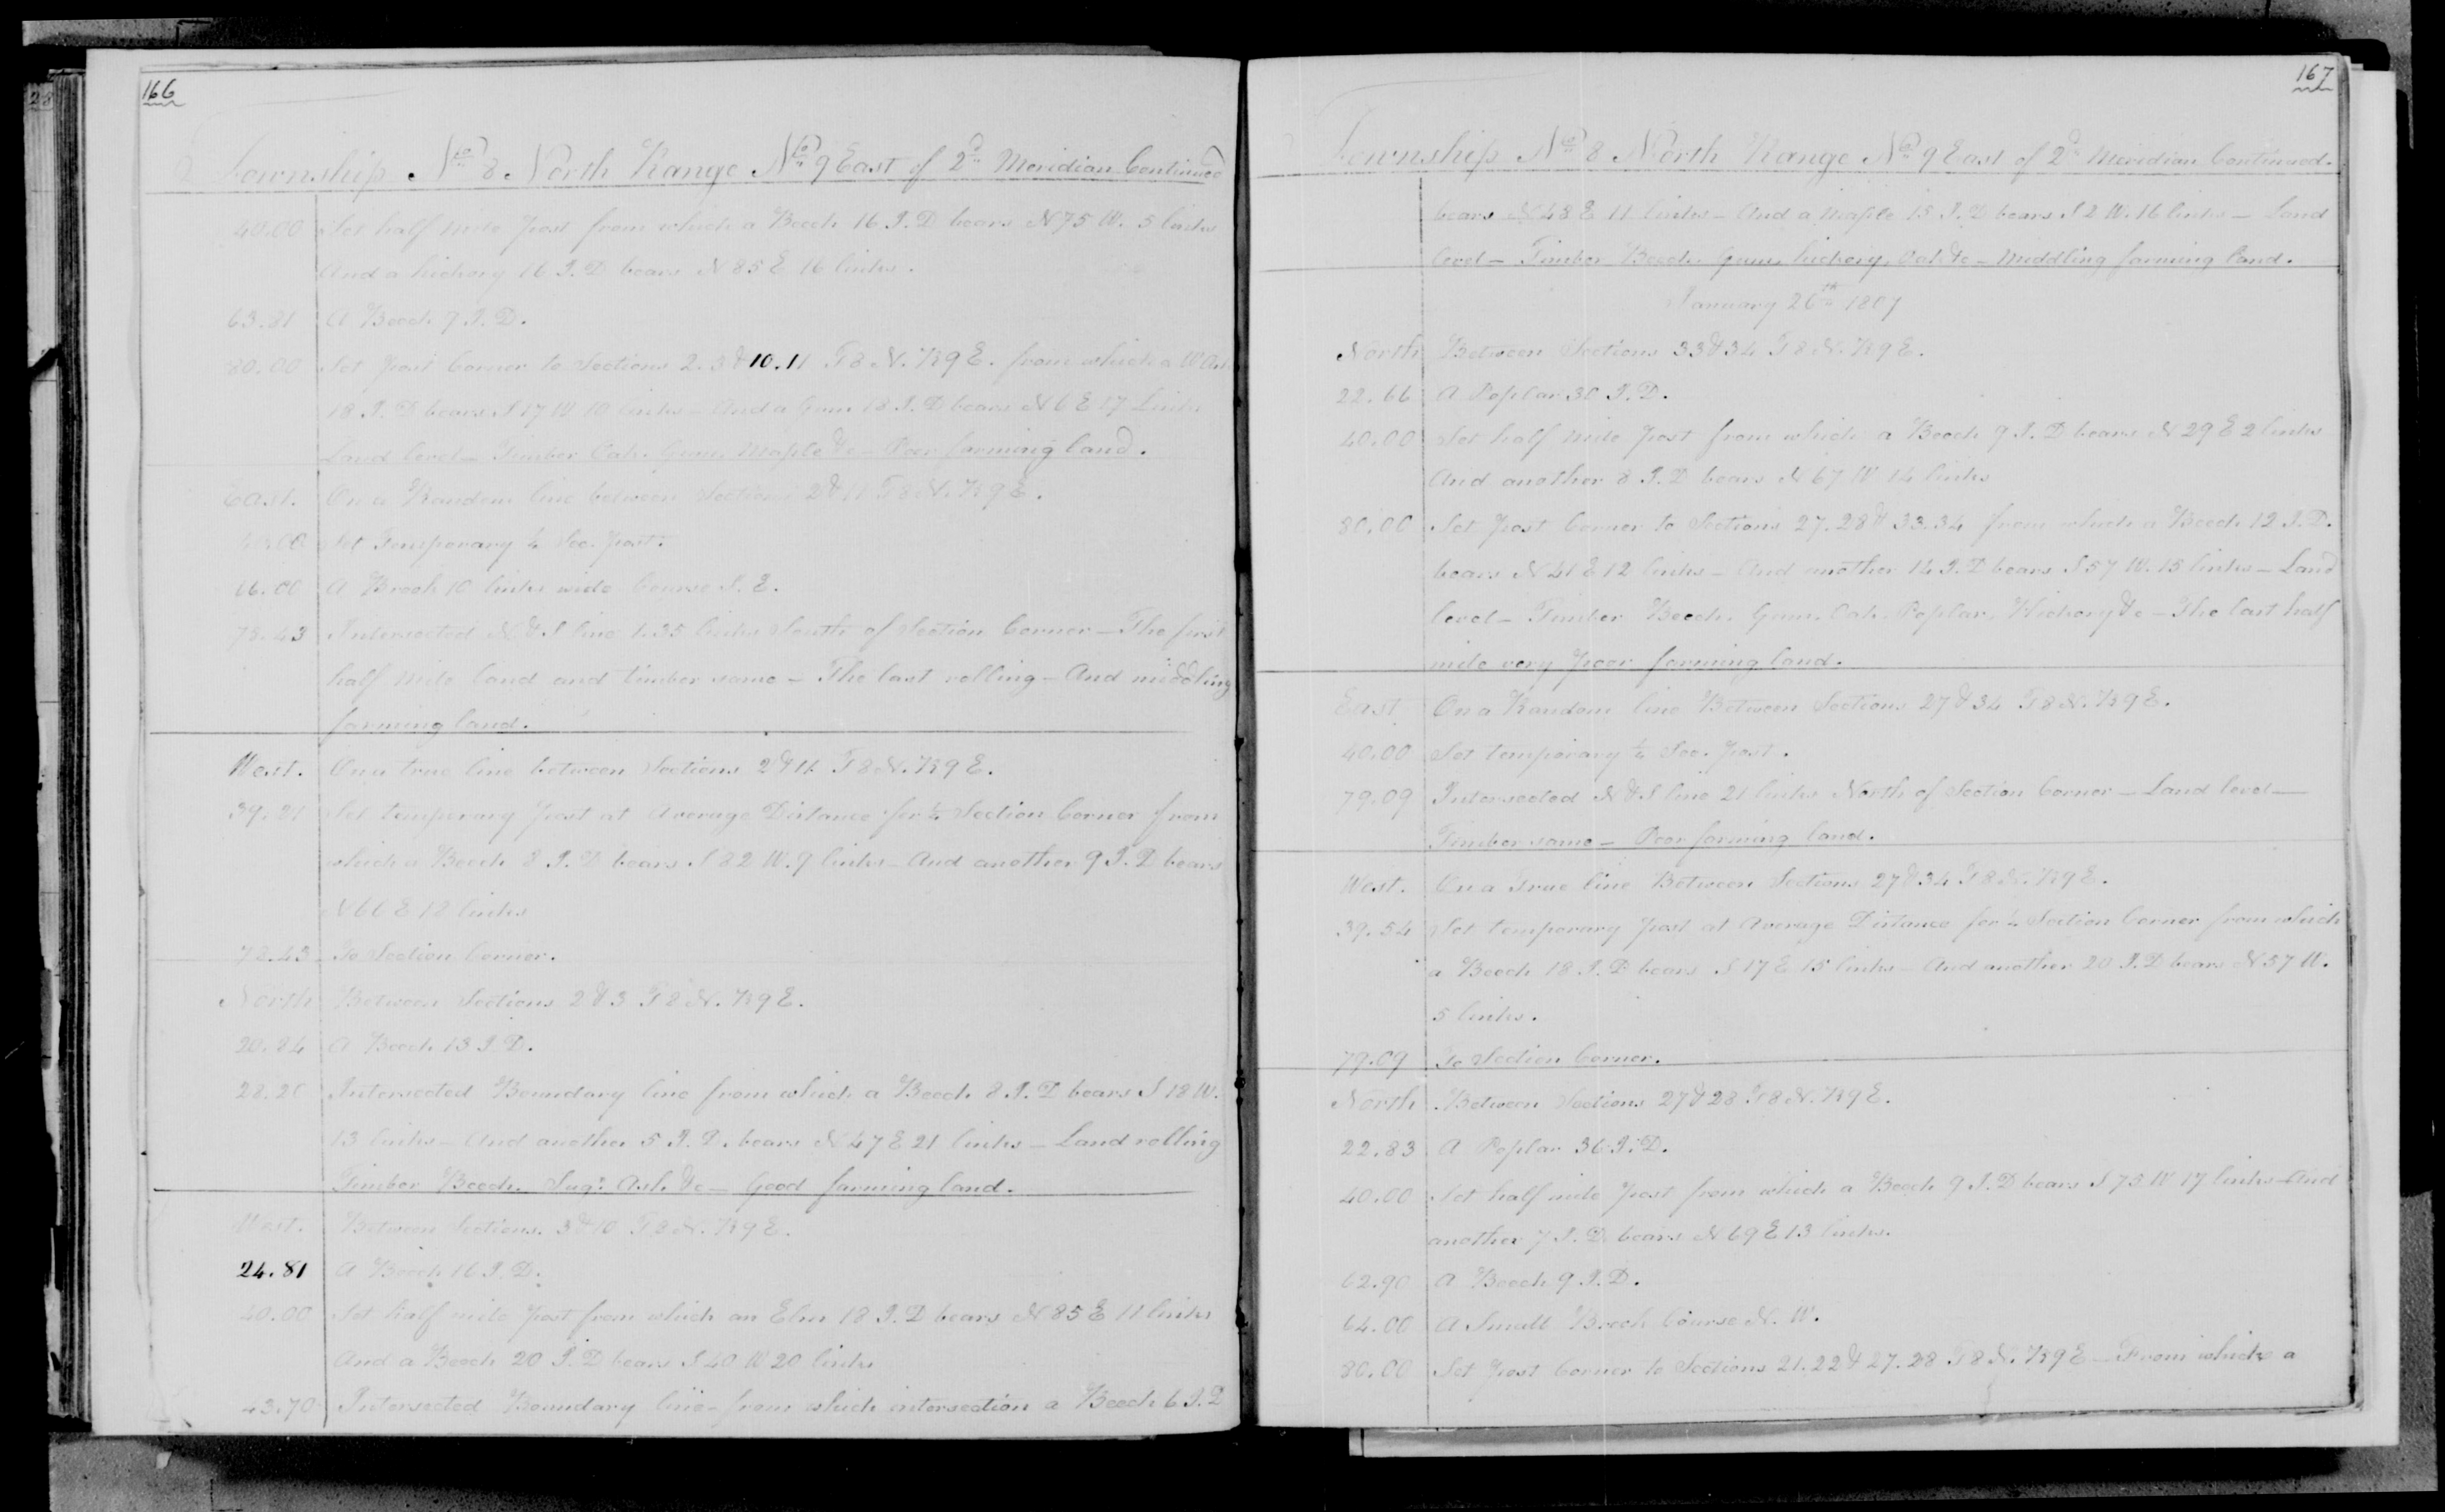 166
Township No 8 North Range No 9 East of 2d Meridian Continued
40.00 Set half mile post from which a Beech 16 I. D bears N 75 W. 5 links
And a hickory 16 I. D bears N 85 E 16 links.
63.81 A Beech 9 I. D.
80.00 Set post Corner to Sections 2. 3 & 10. 11 T 8 N. R 9 E. from which a W Oak
18 I. D bears S 17 W 10 links - And a Gum 18 I. D bears N 6 E 17 Links
Land level - Timber Oak. Gum. Maple &c - Poor farming land.
East. On a Random line between Sections 2 & 11 T 8 N. R 9 E.
40.00 Set Temporary ¼ Sec. post.
66.00 A Brook 10 links wide Course S. E.
78.43 Intersected N & S line 1.35 links South of Section Corner - The first
half mile land and timber same - The last rolling - And middling
farming land.
West. On a true line between Sections 2 & 11 T 8 N. R 9 E.
39.21 Set temporary post at Average Distance for ¼ Section Corner from
which a Beech 8 I. D bears S 82 W. 9 links - And another 9 I. D bears
N 66 E 18 links
78.43 To Section Corner.
North Between Sections 2 & 3 T 8 N. R 9 E.
20.84 A Beech 13 I. D.
28.20 Intersected Boundary line from which a Beech 8 I. D bears S 18 W.
13 links - And another 5 I. D. bears N 47 E 21 links - Land rolling
Timber Beech. Sugr. Ash &c - Good farming land.
West. Between Sections. 3 & 10 T 8 N. R 9 E.
24.81 A Beech 16 I. D.
40.00 Set half mile post from which an Elm 18 I. D bears N 85 E 11 links
And a Beech 20 I. D bears S 40 W 20 links
43.70 Intersected Boundary line - from which intersection a Beech 6 I. D
167
Township No 8 North Range No 9 East of 2d Meridian Continued.
bears N 48 E 11 links - And a Maple 15 I. D bears S 2 W. 16 links - Land
level - Timber Beech. Gum, hickory, Oak &c - Middling farming land.
January 26th 1807
North Between Sections 33 & 34 T 8 N. R 9 E.
22.66 A Poplar 30 I. D.
40.00 Set half mile post from which a Beech 9 I. D bears N 29 E 2 links
And another 8 I. D bears N 67 W 14 links
80.00 Set post Corner to Sections 27. 28 & 33. 34 from which a Beech 12 I. D.
bears N 41 E 12 links - And another 14 I. D bears S 57 W. 15 links - Land
level - Timber Beech. Gum. Oak. Poplar. Hickory &c - The last half
mile very poor farming land.
East On a Random line Between Sections 27 & 34 T 8 N. R 9 E.
40.00 Set temporary ¼ Sec. post.
79.09 Intersected N & S line 21 links North of Section Corner - Land level -
Timber same - Poor farming land.
West. On a True line Between Sections 27 & 34 T 8 N. R 9 E.
39.54 Set temporary post at Average Distance for ¼ Section Corner from which
a Beech 18 I. D bears S 17 E 15 links - And another 20 I. D bears N 57 W.
5 links.
79.09 To Section Corner.
North Between Sections 27 & 28 T 8 N. R 9 E.
22.83 A Poplar 36 I. D.
40.00 Set half mile post from which a Beech 9 I. D bears S 73 W 17 links - And
another 7 I. D. bears N 69 E 13 links.
62.90 A Beech 9 I. D.
64.00 A Small Brook Course N. W.
80.00 Set post Corner to Sections 21. 22 & 27. 28 T 8 N. R 9 E - From which a